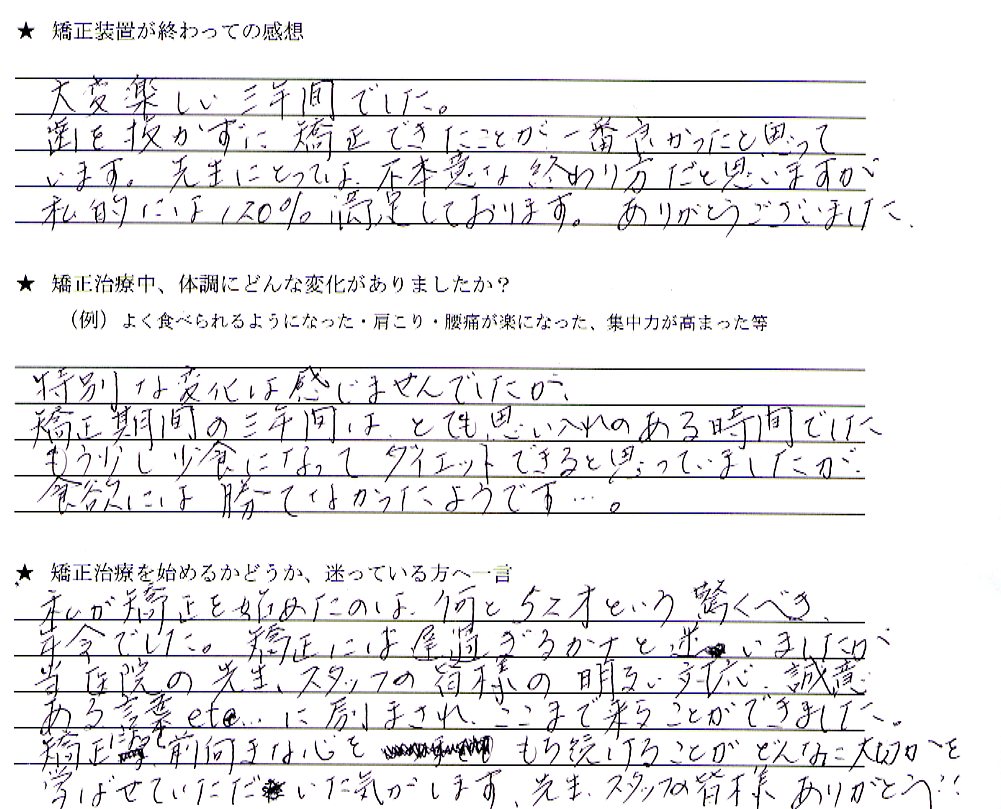 ★ 矯正装置が終わっての感想
大変楽しい三年間でした。
歯を抜かずに矯正できたことが一番良かったと思って
います。先生にとっては、不本意な終わり方だと思いますが
私的には120%満足しております。ありがとうございました。
★ 矯正治療中、体調にどんな変化がありましたか？
（例）よく食べられるようになった・肩こり・腰痛が楽になった、集中力が高まった等
特別な変化は感じませんでしたが、
矯正期間の三年間は、とても思い入れのある時間でした
もう少し少食になってダイエットできると思っていましたが、
食欲には勝てなかったようです…。
★ 矯正治療を始めるかどうか、迷っている方へ一言
私が矯正を始めたのは、何と52才という驚くべき
年令でした。矯正には遅過ぎるかナと迷いましたが
当医院の先生、スタッフの皆様の明るい対応、誠意
ある言葉etc…に励まされ、ここまで来ることができました。
矯正に前向きな心をもち続けることがどんなに大切かを
学ばせていただいた気がします。先生、スタッフの皆様ありがとう!!